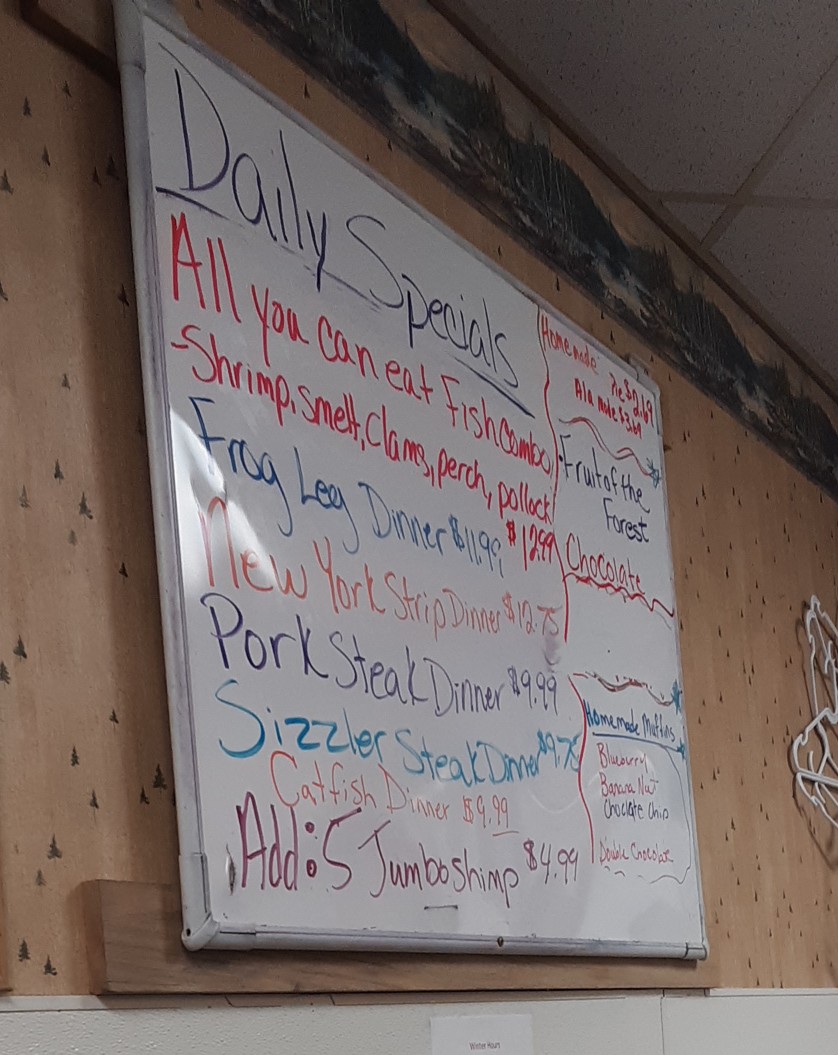 Daily Specials
All you can eat Fish Combo
-Shrimp, smelt, Clams, perch, pollock
$12.99
Frog Leg Dinner $11.99
New York Strip Dinner $12.75
Pork Steak Dinner $9.99
Sizzler Steak Dinner $9.75
Catfish Dinner $9.99
Add: 5 Jumbo Shimp $4.99
Homemade Pie $2.69
Ala mode $3.69
Fruit of the
Forest
Chocolate
Homemade Muffins
Blueberry
Banana Nut
Choclate Chip
Double Chocolate
Winter Hours